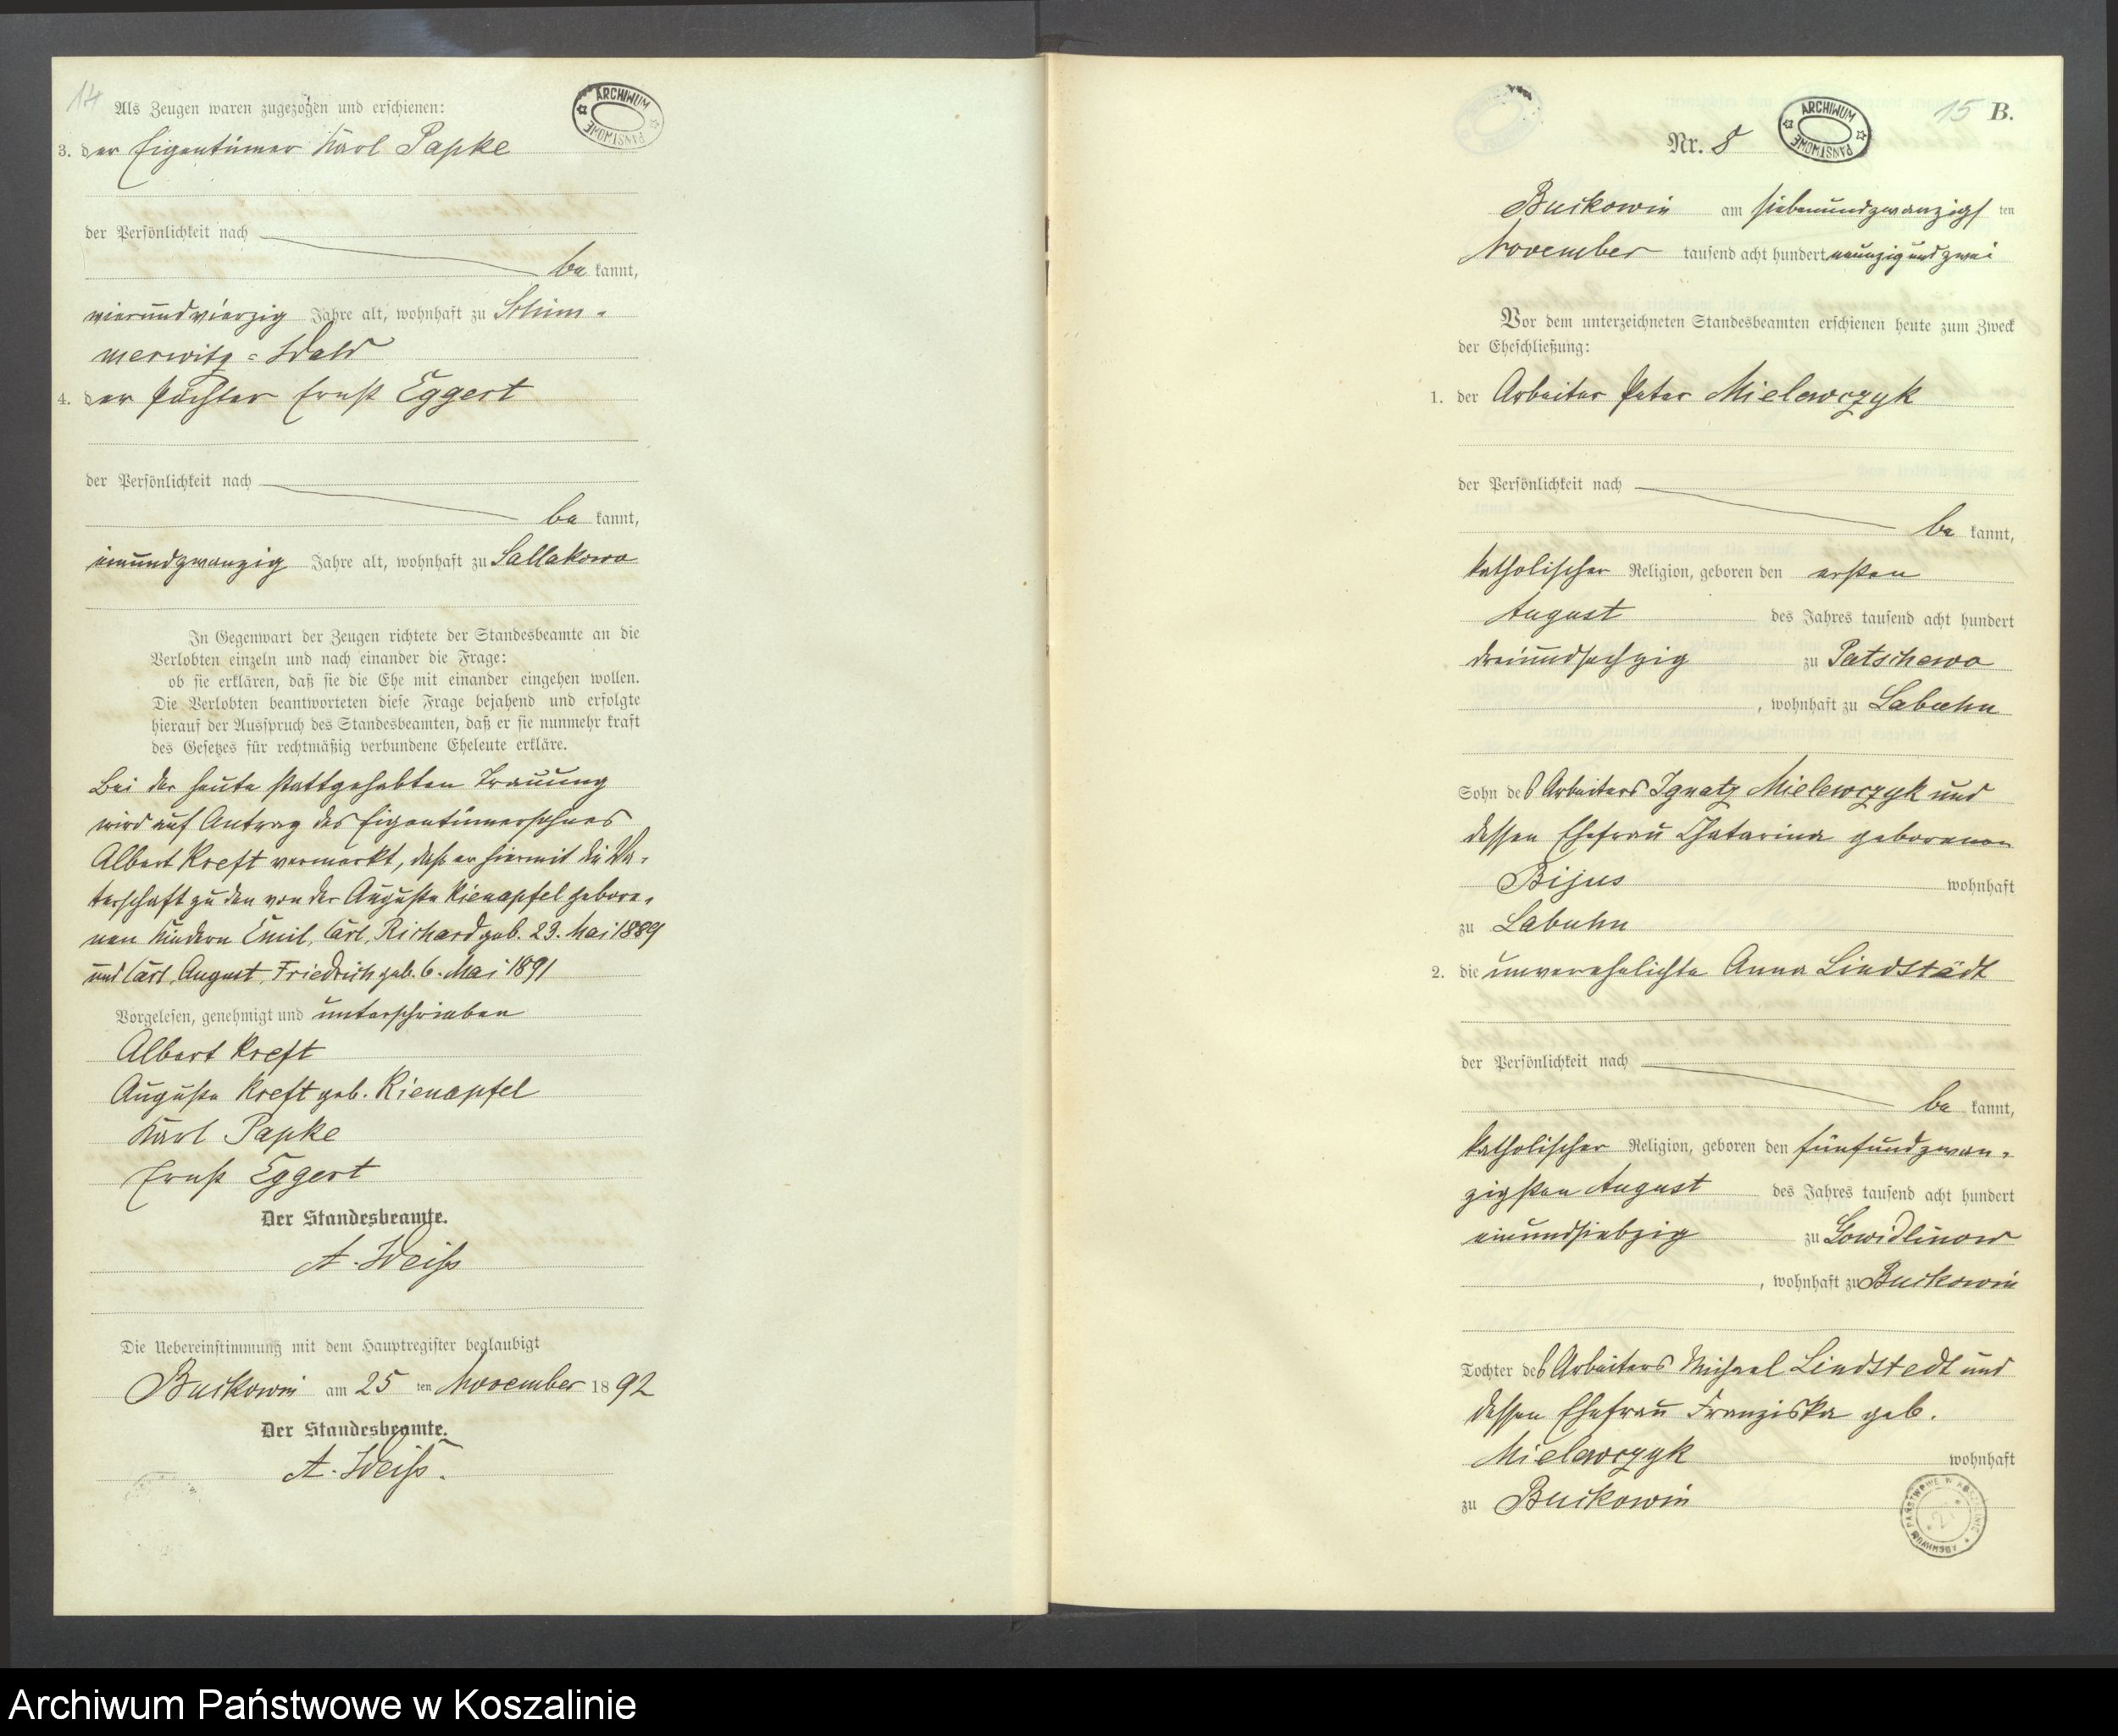 14
Als Zeugen waren zugezogen und erschienen:
ARCHIWUM PAŃSTWOWE
3. der Eigentümer Karl Papke
der Persönlichkeit nach
be kannt,
vierundvierzig Jahre alt, wohnhaft zu Schim-
merwitz-Wald
4. der Pächter Ernst Eggert
der Persönlichkeit nach
be kannt,
einundzwanzig Jahre alt, wohnhaft zu Sallakowo
In Gegenwart der Zeugen richtete der Standesbeamte an die
Verlobten einzeln und nach einander die Frage:
ob sie erklären, daß sie die Ehe mit einander eingehen wollen.
Die Verlobten beantworteten diese Frage bejahend und erfolgte
hierauf der Ausspruch des Standesbeamten, daß er sie nunmehr kraft
des Gesetzes für rechtmäßig verbundene Eheleute erkläre.
Bei der heute stattgehabten Trauung
wird auf Antrag des Eigentümersohnes
Albert Kreft vermerkt, daß er hiermit die Va-
terschaft zu den von der Auguste Kienapfel gebore-
nen Kindern Emil, Carl, Richard geb. 23. Mai 1889
und Carl, August, Friedrich geb. 6. Mai 1891
Vorgelesen, genehmigt und unterschrieben
Albert Kreft
Auguste Kreft geb. Kienapfel
Karl Papke
Ernst Eggert
Der Standesbeamte.
A. Weiß
Die Uebereinstimmung mit dem Hauptregister beglaubigt
Buckowin am 25 ten November 18 92
Der Standesbeamte.
A. Weiß.
15 B.
ARCHIWUM PAŃSTWOWE
Nr. 8
Buckowin am siebenundzwanzigs ten
November tausend acht hundert neunzig und zwei
Vor dem unterzeichneten Standesbeamten erschienen heute zum Zweck
der Eheschließung:
1. der Arbeiter Peter Mielewczyk
der Persönlichkeit nach
be kannt,
katholischer Religion, geboren den ersten
August des Jahres tausend acht hundert
dreiundsechzig zu Patschewo
, wohnhaft zu Labuhn
Sohn des Arbeiters Ignatz Mielewczyk und
dessen Ehefrau Chatarina geborenen
Bijus wohnhaft
zu Labuhn
2. die unverehelichte Anna Lindstädt
der Persönlichkeit nach
be kannt,
katholischer Religion, geboren den fünfundzwan-
zigsten August des Jahres tausend acht hundert
einundsiebzig zu Gowidlinow
, wohnhaft zu Buckowin
Tochter des Arbeiters Michael Lindstedt und
dessen Ehefrau Franziska geb.
Mielewczyk wohnhaft
zu Buckowin
Archiwum Państwowe w Koszalinie